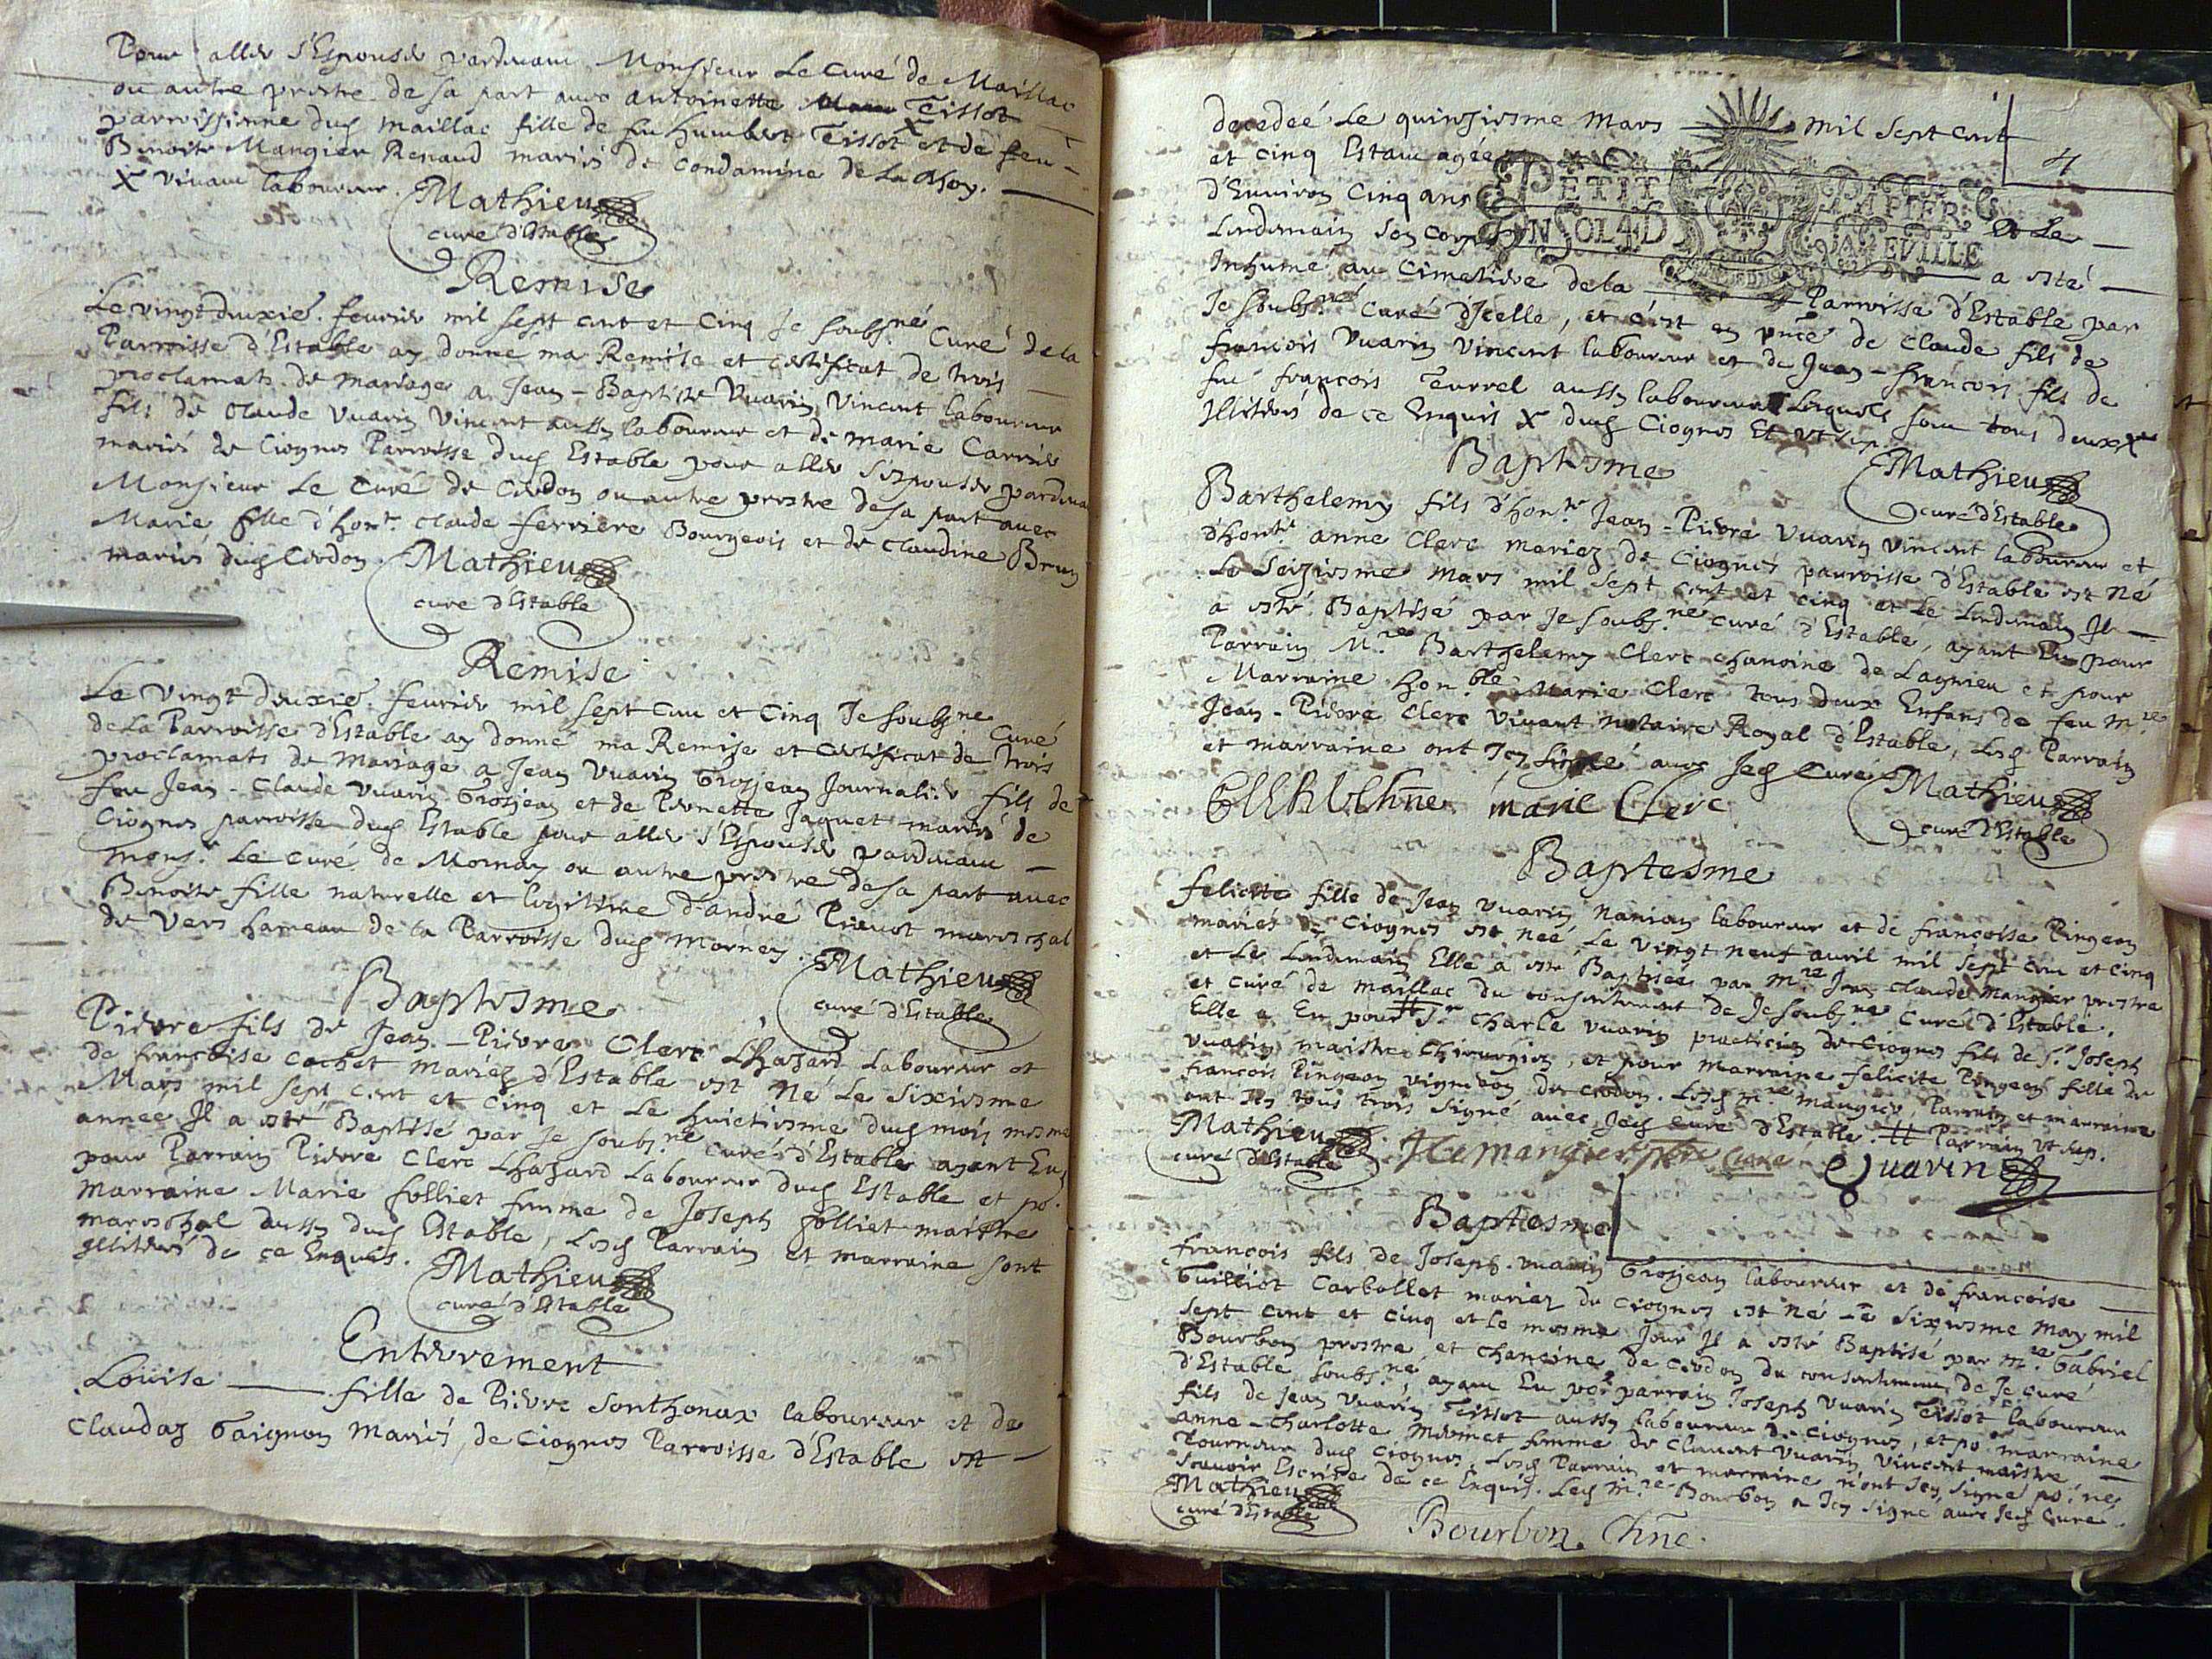 Pour aller s'Espouser pardevant Monsieur Le Curé de Maillac
ou autre prestre de sa part avec antoinette Tissot
parroissienne dud maillac fille de feu humbert Tissot X et de feu -
Benoite Mangier Renaud mariés de Condamine de La Doy.
X vivant laboureur. Mathieu
curé d'Estable
Remise
Le vingt deuxie. fevrier mil sept cent et Cinq Je soubs.né Curé de la
Parroisse d'Estable ay donné ma Remise et certificat de trois
proclamats de mariage a Jean-Baptiste Vuarin Vincent laboureur
fils de Claude Vuarin Vincent aussy laboureur et de marie Carrier
mariés de Ciognes Parroisse dud Estable pour aller s'Espouser pardeva
Monsieur Le Curé de Cerdon ou autre prestre de sa part avec
Marie fille d'hon.e Claude ferriere Bourgeois et de Claudine Brun
mariés dud Cerdon. Mathieu
curé d'Estable
Remise
Le Vingt deuxie. fevrier mil sept cent et Cinq Je soubs.né Curé
de La Parroisse d'Estable ay donné ma Remise et certificat de trois
proclamats de Mariage a Jean Vuarin Grosjean Journalier fils de
feu Jean-Claude Vuarin Grosjean et de Pernette Jaquet mariés de
Ciognes parroisse dud Estable pour aller s'Espouser pardevant
Mons.r Le Curé de Mornay ou autre prestre de sa part avec
Benoite fille naturelle et legitime d'andré Prevot mareschal
de Vers hameau de la Parroisse dud Mornay. Mathieu
curé d'Estable
Baptesme
Pierre fils de Jean-Pierre Clerc Lhazard Laboureur et
de françoise cochet Mariez d'Estable est Né Le sixiesme
Mars mil sept cent et Cinq et Le huictiesme dud mois mesme
année Il a esté Baptisé par Je soubs.né Curé d'Estable ayant Eu
pour Parrain Pierre Clerc Lhazard Laboureur dud Estable et po.
Marraine Marie folliet femme de Joseph folliet maistre
mareschal aussy dud Estable, Lesd Parrain et marraine sont
Illiteres de ce Enquis. Mathieu
curé d'Estable
Enterrement
Louise fille de Pierre Sonthonax laboureur et de
Claudaz Gaignon Mariés, de Ciognes Parroisse d'Estable est
decedeé Le quinziesme Mars mil sept cent
4
et cinq Estant agée
PETIT PAPIER
d'Environ Cinq ans et Le
EN SOL 4D VALEVILLE
Lendemain son corps a esté
Inhumé au Cimetiere de la Parroisse d'Estable par
Je soubs.né Curé d'Icelle, et c'est en pnce de Claude fils de
françois Vuarin Vincent laboureur et de Jean-françois fils de
feu françois Turrel aussy laboureur Lesquels sont tous deux X
Illiteres de ce Enquis X dud Ciognes Et vt sup.
Baptesme
Mathieu
curé d'Estable
Barthelemy fils d'hon.te Jean-Pierre Vuarin Vincent laboureur et
d'hon.te anne Clerc Mariez de Ciognes parroisse d'Estable est Né
Le Seiziesme Mars mil sept cent et cinq et Le Lendemain Il
a esté Baptisé par Je soubs.né curé d'Estable, ayant Eu pour
Parrain M.re Barthelemy Clerc chanoine de Lagnieu et pour
Marraine hon.ble Marie Clerc tous deux Enfans de feu M.re
Jean-Pierre Clerc Vivant notaire Royal d'Estable, Lesd Parrain
et marraine ont Icy signé avec Jed Curé
marie Clerc
Mathieu
curé d'Estable
Baptesme
felicite fille de Jean Vuarin Nanian laboureur et de françoise Pingeon
mariés de Ciognes est neé Le vingt neuf avril mil sept cent et cinq
et Le Lendemain Elle a esté Baptiseé par M.re Jean Claude Mangier prestre
et Curé de maillac du consentement de Je soubs.né Curé d'Estable.
Elle a Eu pour # S.r Charle Vuarin practicien de Ciognes fils de S.r Joseph
Vuarin maistre Chirurgien, et pour Marraine felicite Pingeon fille de
françois Pingeon vigneron de Cerdon. Lesd M.re Mangier, Parrain et marraine
ont Icy tous trois signé avec Jed Curé d'Estable. # Parrain vt sup.
Mathieu
curé d'Estable
JCmangier ptre curé
Quarin
Baptesme
françois fils de Joseph Vuarin Grosjean laboureur et de françoise
Guilliot Carbollet mariez de Ciognes est Né Le Sixiesme May mil
Sept cent et Cinq et Le mesme Jour Il a esté Baptisé par M.re Gabriel
Bourbon prestre et chanoine de Cerdon du consentement de Je Curé
d'Estable soubs.né, ayant Eu po.r parrain Joseph Vuarin Tissot laboureur
fils de Jean Vuarin Tissot aussy laboureur de Ciognes, et po.r marraine
anne-Charlotte Mermet femme de Clement Vuarin Vincent maistre
Tourneur dud Ciognes, Lesd Parrain et marraine n'ont Icy signé po.r ne
sçavoir Escrire de ce Enquis. Led M.re Bourbon a Icy signé avec Jed Curé.
Mathieu
curé d'Estable
Bourbon Chne